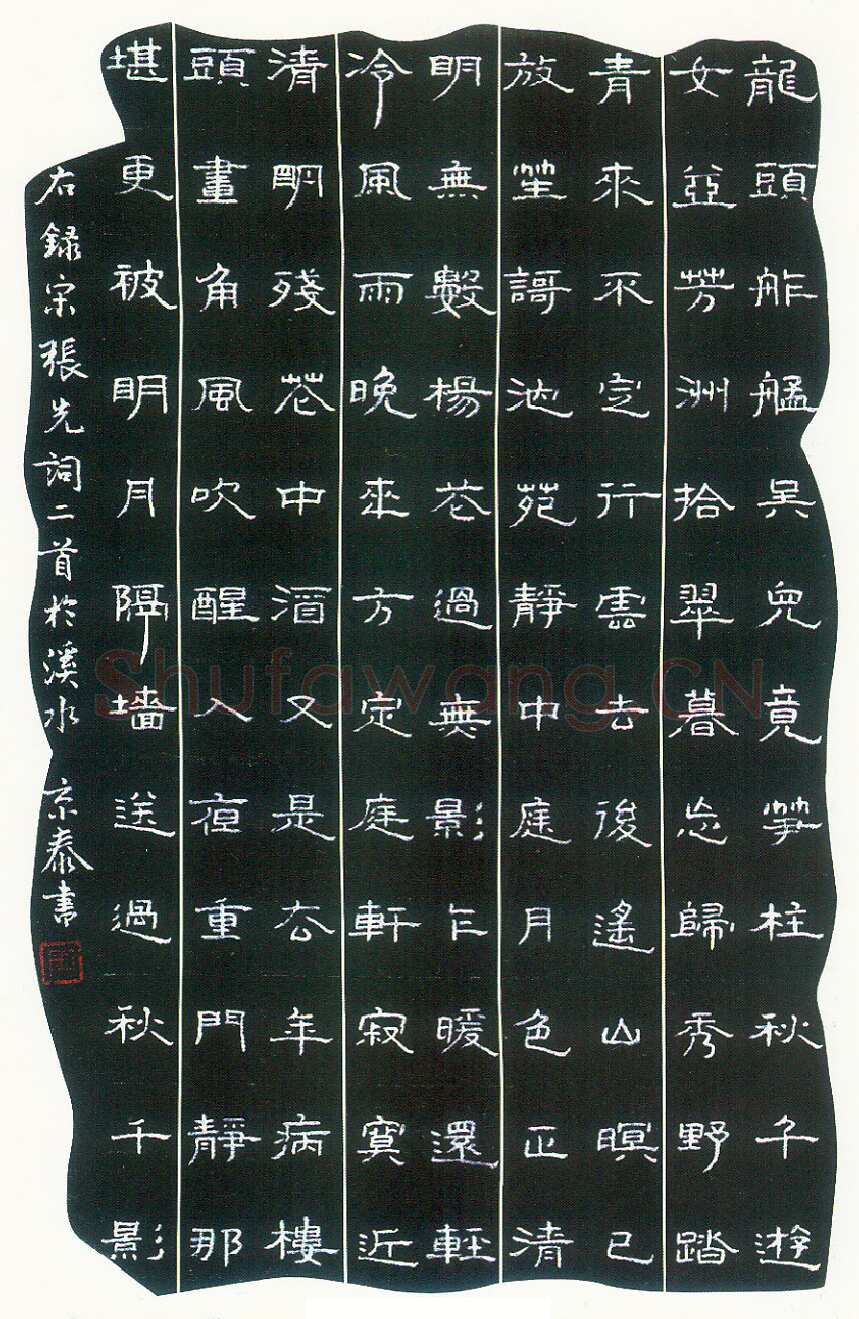 龍頭舴艋吳兒竟筍柱秋千遊
女並芳洲拾翠暮忘歸秀野踏
青來不定行雲去後遙山暝已
放笙謌池苑靜中庭月色正清
明無數楊花過無影乍暖還輕
冷風雨晚來方定庭軒寂寞近
清明殘花中酒又是去年病樓
頭畫角風吹醒入夜重門靜那
堪更被明月隔墻送過秋千影
右錄宋張先詞二首於溪水 京泰書
Shufawang.CN